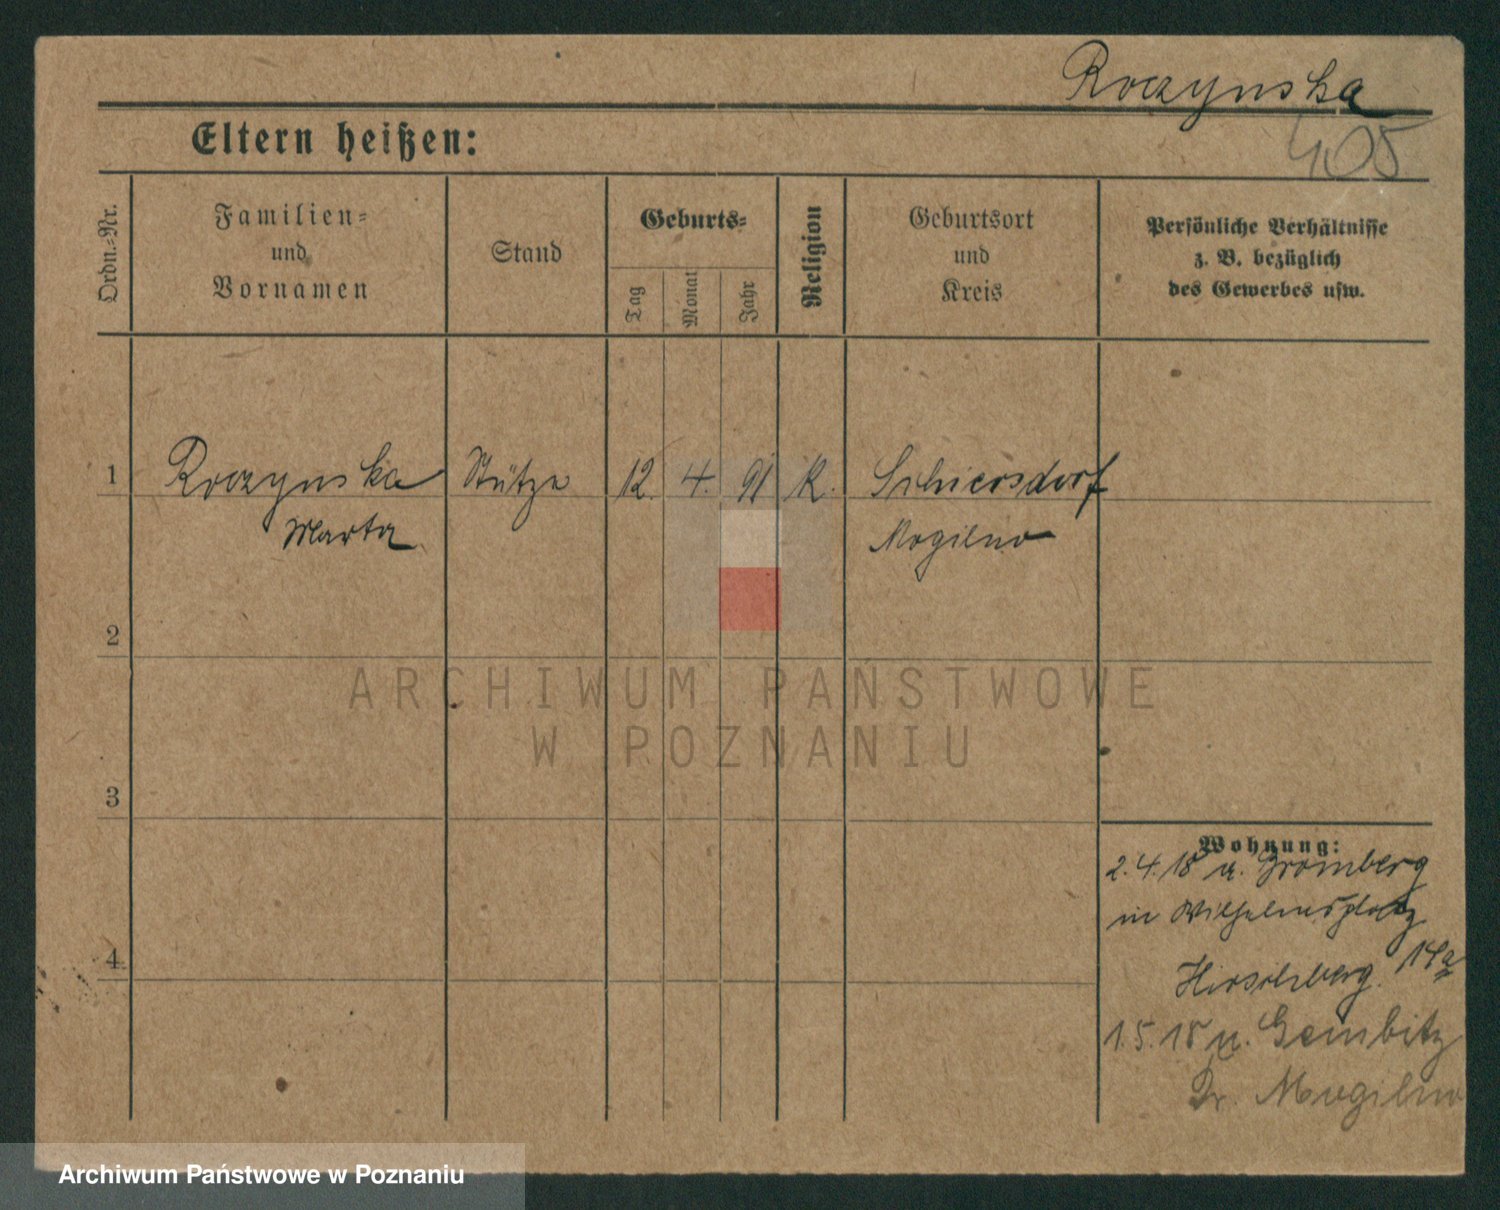 Roczynska
405
Eltern heißen:
Ordn.=Nr.
Familien=
und
Vornamen
Stand
Geburts=
Tag
Monat
Jahr
Religion
Geburtsort
und
Kreis
Persönliche Verhältnisse
z. B. bezüglich
des Gewerbes usw.
1 Roczynska Stütze 12. 4. 91 K. Schiersdorf
Marta Mogilno
2
3
4
Wohnung:
2.4.18 a. Bromberg
in Wilhelmsplatz
14a
Hirschberg.
1.5.18 n. Gembitz
Kr. Mogilno
ARCHIWUM PAŃSTWOWE
W POZNANIU
Archiwum Państwowe w Poznaniu